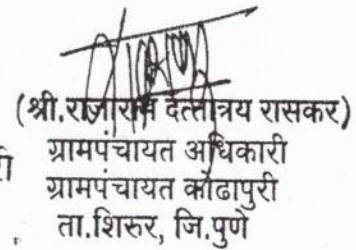 (श्री.राजाराम दत्तात्रय रासकर)
ग्रामपंचायत अधिकारी
ग्रामपंचायत कोंढापुरी
ता.शिरुर, जि.पुणे